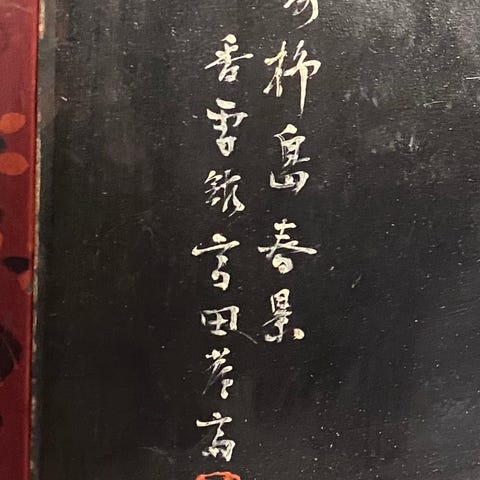 柳島春景
香雪館田高